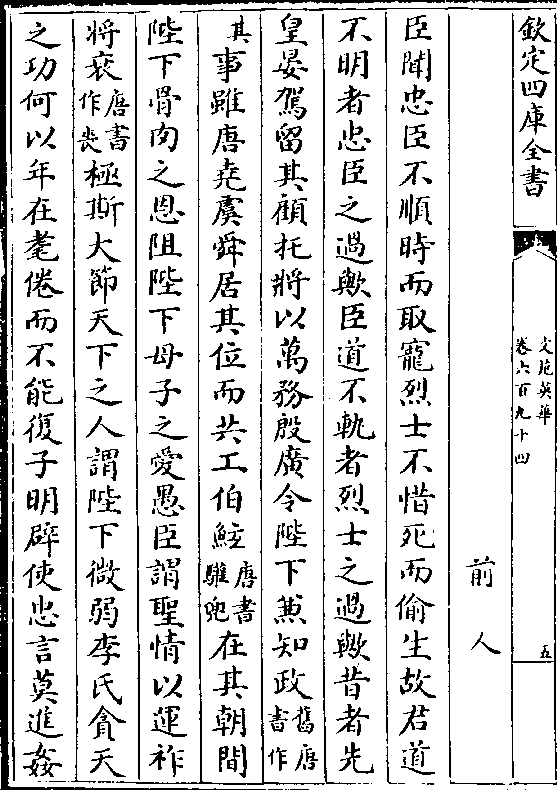 欽定四庫全書
文苑英華
卷六百九十四
五
前人
臣聞忠臣不順時而取寵烈士不惜死而偷生故君道
不明者忠臣之過歟臣道不軌者烈士之過歟昔者先
皇晏駕留其顧托將以萬務殷廣令陛下兼知政舊唐書作
其事雖唐堯虞舜居其位而共工伯鯀唐書驩兜在其朝間
陛下骨肉之恩阻陛下母子之愛愚臣謂聖情以運祚
將衰唐書作喪極斯大節天下之人謂陛下微弱李氏貪天
之功何以年在耄倦而不能復子明辟使忠言莫進姦